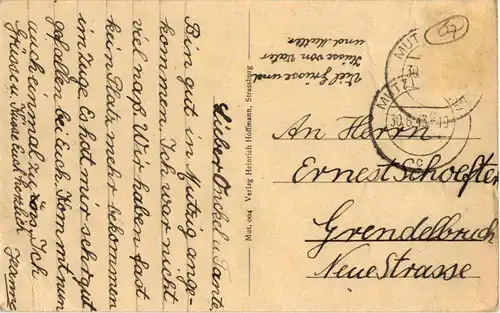 Lieber Onkel u. Tante.
Bin gut in Mutzig ange-
kommen. Ich war nicht
viel naß. Wir haben fast
kein Platz mehr bekommen
im Zuge. Es hat mir sehr gut
gefallen bei Euch. Kommt nun
auch einmal zu uns. Ich
Grüsse u. Küsse Euch herzlich
Viel Grüsse und
Küsse von Vater
und Mutter
Mut. 004 Verlag Heinrich Hoffmann, Strassburg
67
MUT
MUTZ
30.6.43
An Herrn
Ernest Schoeffter
Grendelbruch
Neue Strasse